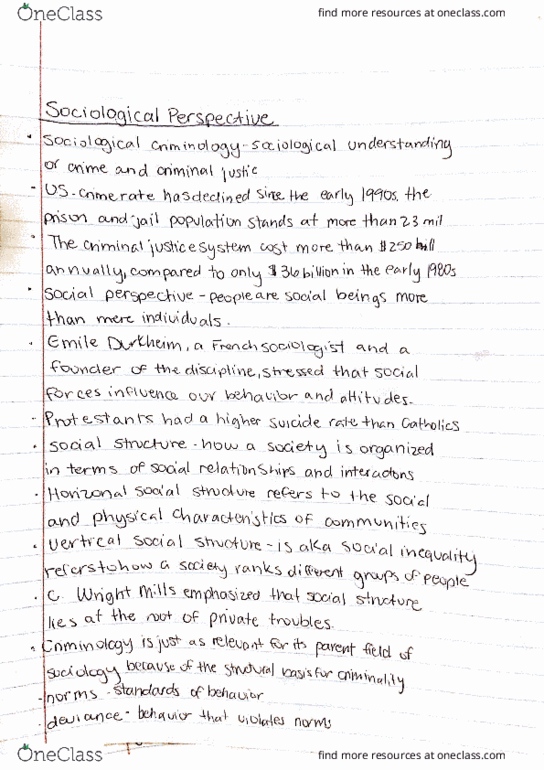 OneClass
find more resources at oneclass.com
Sociological Perspective
Sociological criminology - sociological understanding
of crime and criminal justic
US - crime rate has declined since the early 1990s, the
prison and jail population stands at more than 2.3 mil
The criminal justice system cost more than $250 bill
annually, compared to only $36 billion in the early 1980s
Social perspective - people are social beings more
than mere individuals.
Emile Durkheim, a French sociologist and a
founder of the discipline, stressed that social
forces influence our behavior and attitudes.
- Protestants had a higher suicide rate than Catholics
. social structure - how a society is organized
in terms of social relationships and interactons
. Horizonal social structure refers to the social
and physical characteristics of communities
. vertical social structure - is aka social inequality
refers to how a society ranks different groups of people
. C. Wright Mills emphasized that social structure
lies at the root of private troubles.
. Criminology is just as relevant for its parent field of
sociology because of the structural basis for criminality
- norms - standards of behavior
. deviance - behavior that violates norms
OneClass
find more resources at oneclass.com